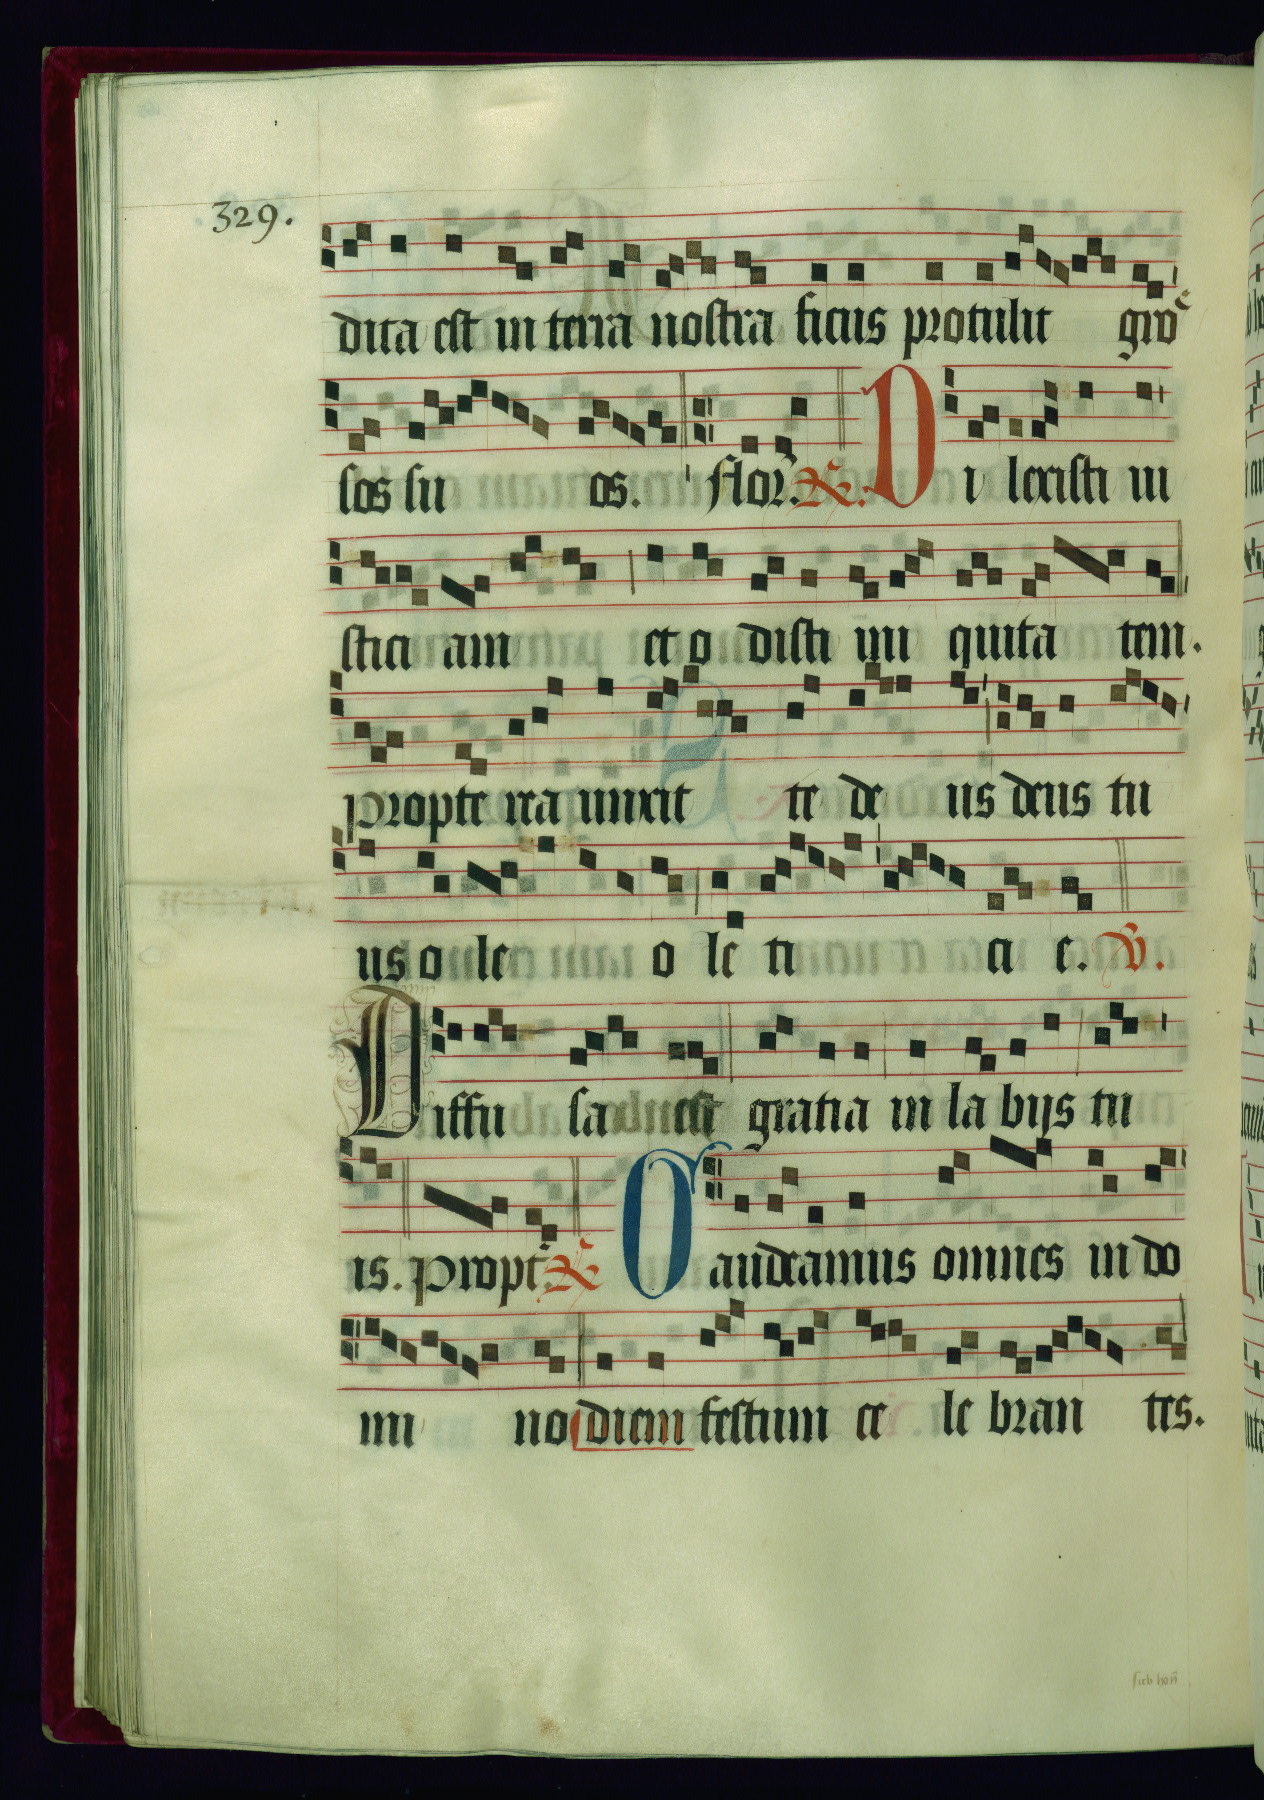 329.
dita est in terra nostra ficus protulit gro
sos su os. flor. R. Di lexisti iu
stici am et o disti ini quita tem.
propte rea unxit te de us deus tu
us o le o le ti ci e. V.
Diffu sa est gratia in la bijs tu
is. propt. R. Gaudeamus omnes in do
mi no diem festum ce le bran tes.
sub hon